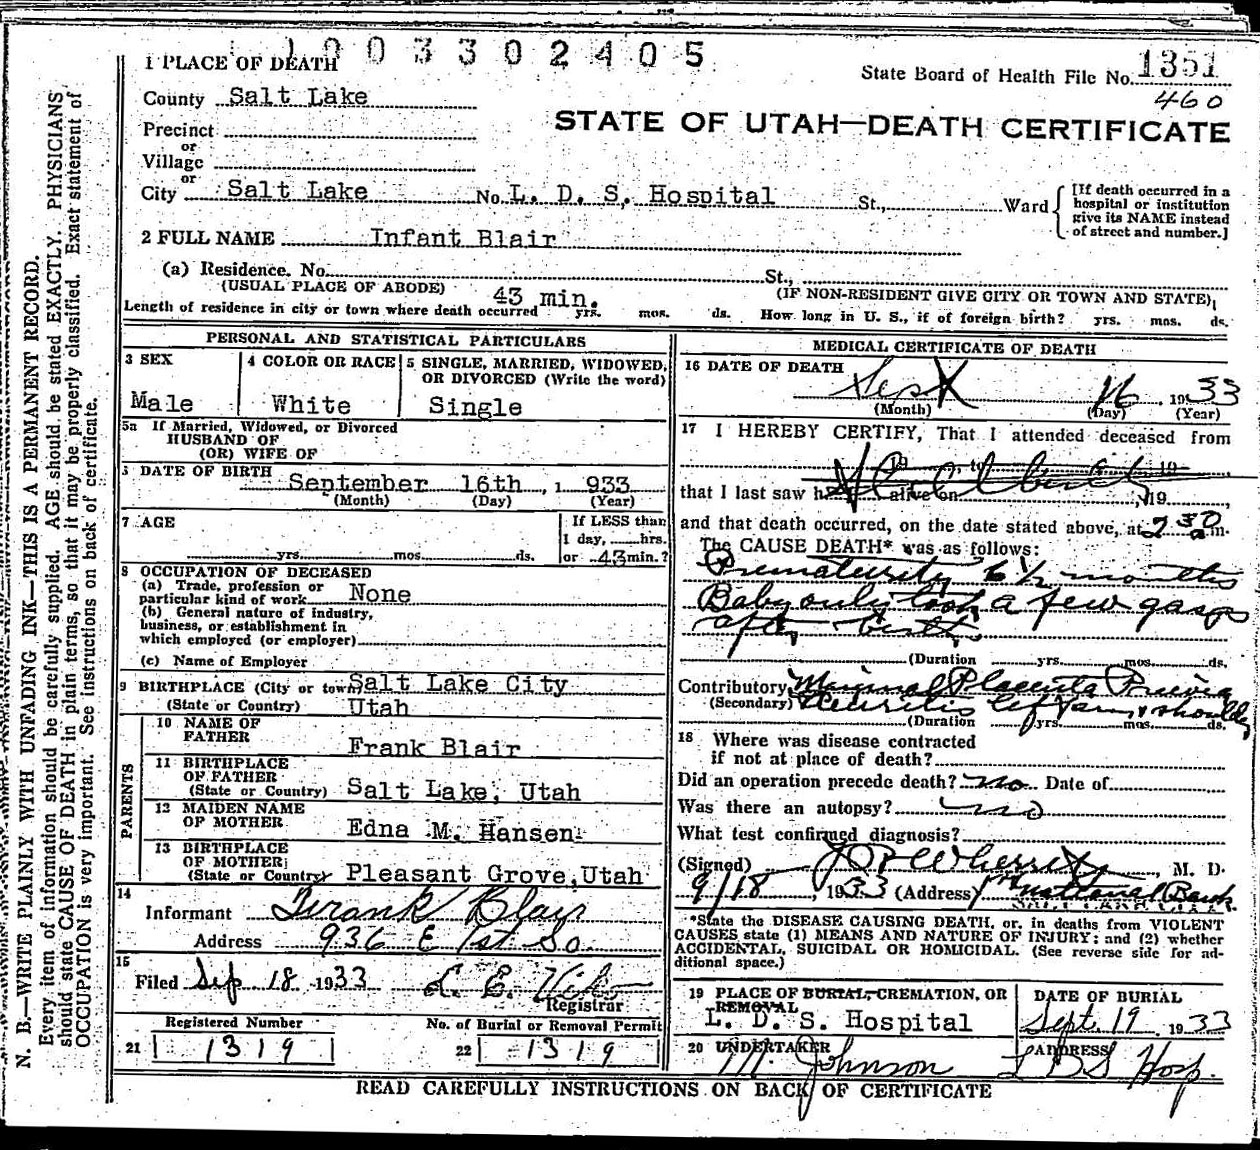 1003302405
1 PLACE OF DEATH
State Board of Health File No. 1351
460
County Salt Lake
STATE OF UTAH—DEATH CERTIFICATE
Precinct
or
Village
or
City Salt Lake No. L. D. S. Hospital St., Ward
[If death occurred in a
hospital or institution
give its NAME instead
of street and number.]
2 FULL NAME Infant Blair
(a) Residence. No. St.,
(USUAL PLACE OF ABODE) (IF NON-RESIDENT GIVE CITY OR TOWN AND STATE)
43 min.
Length of residence in city or town where death occurred yrs. mos. ds. How long in U. S., if of foreign birth? yrs. mos. ds.
PERSONAL AND STATISTICAL PARTICULARS
3 SEX
Male
4 COLOR OR RACE
White
5 SINGLE, MARRIED, WIDOWED,
OR DIVORCED (Write the word)
Single
5a If Married, Widowed, or Divorced
HUSBAND OF
(OR) WIFE OF
DATE OF BIRTH
September 16th, 1933
(Month) (Day) (Year)
7 AGE
yrs. mos. ds.
If LESS than
1 day, hrs.
or 43 min.?
8 OCCUPATION OF DECEASED
(a) Trade, profession or
particular kind of work None
(b) General nature of industry,
business, or establishment in
which employed (or employer)
(c) Name of Employer
9 BIRTHPLACE (City or town) Salt Lake City
(State or Country) Utah
PARENTS
10 NAME OF
FATHER Frank Blair
11 BIRTHPLACE
OF FATHER
(State or Country) Salt Lake, Utah
12 MAIDEN NAME
OF MOTHER Edna M. Hansen
13 BIRTHPLACE
OF MOTHER
(State or Country) Pleasant Grove, Utah
14
Informant Frank Blair
Address 936 E 1st So.
15
Filed Sep 18 1933 L. E.
Registrar
Registered Number
21 1319
No. of Burial or Removal Permit
22 1319
MEDICAL CERTIFICATE OF DEATH
16 DATE OF DEATH
Sept 16, 1933
(Month) (Day) (Year)
17 I HEREBY CERTIFY, That I attended deceased from
19 , to 19
that I last saw h alive on , 19
and that death occurred, on the date stated above, at 7 30 a m.
The CAUSE DEATH* was as follows:
Prematurity 6 1/2 months
Baby only took a few gasps
after birth
(Duration yrs. mos. ds.
Contributory Marginal Placenta Previa
(Secondary) Neuritis left arm & shoulder
(Duration yrs. mos. ds.
18 Where was disease contracted
if not at place of death?
Did an operation precede death? no Date of
Was there an autopsy? no
What test confirmed diagnosis?
(Signed) M. D.
9/18, 1933 (Address) 1st National Bank
*State the DISEASE CAUSING DEATH, or, in deaths from VIOLENT
CAUSES state (1) MEANS AND NATURE OF INJURY; and (2) whether
ACCIDENTAL, SUICIDAL OR HOMICIDAL. (See reverse side for ad-
ditional space.)
19 PLACE OF BURIAL, CREMATION, OR
REMOVAL
L. D. S. Hospital
DATE OF BURIAL
Sept. 19, 1933
20 UNDERTAKER
M Johnson
ADDRESS
L D S Hosp.
READ CAREFULLY INSTRUCTIONS ON BACK OF CERTIFICATE
N. B.—WRITE PLAINLY WITH UNFADING INK—THIS IS A PERMANENT RECORD.
Every item of information should be carefully supplied. AGE should be stated EXACTLY. PHYSICIANS
should state CAUSE OF DEATH in plain terms, so that it may be properly classified. Exact statement of
OCCUPATION is very important. See instructions on back of certificate.